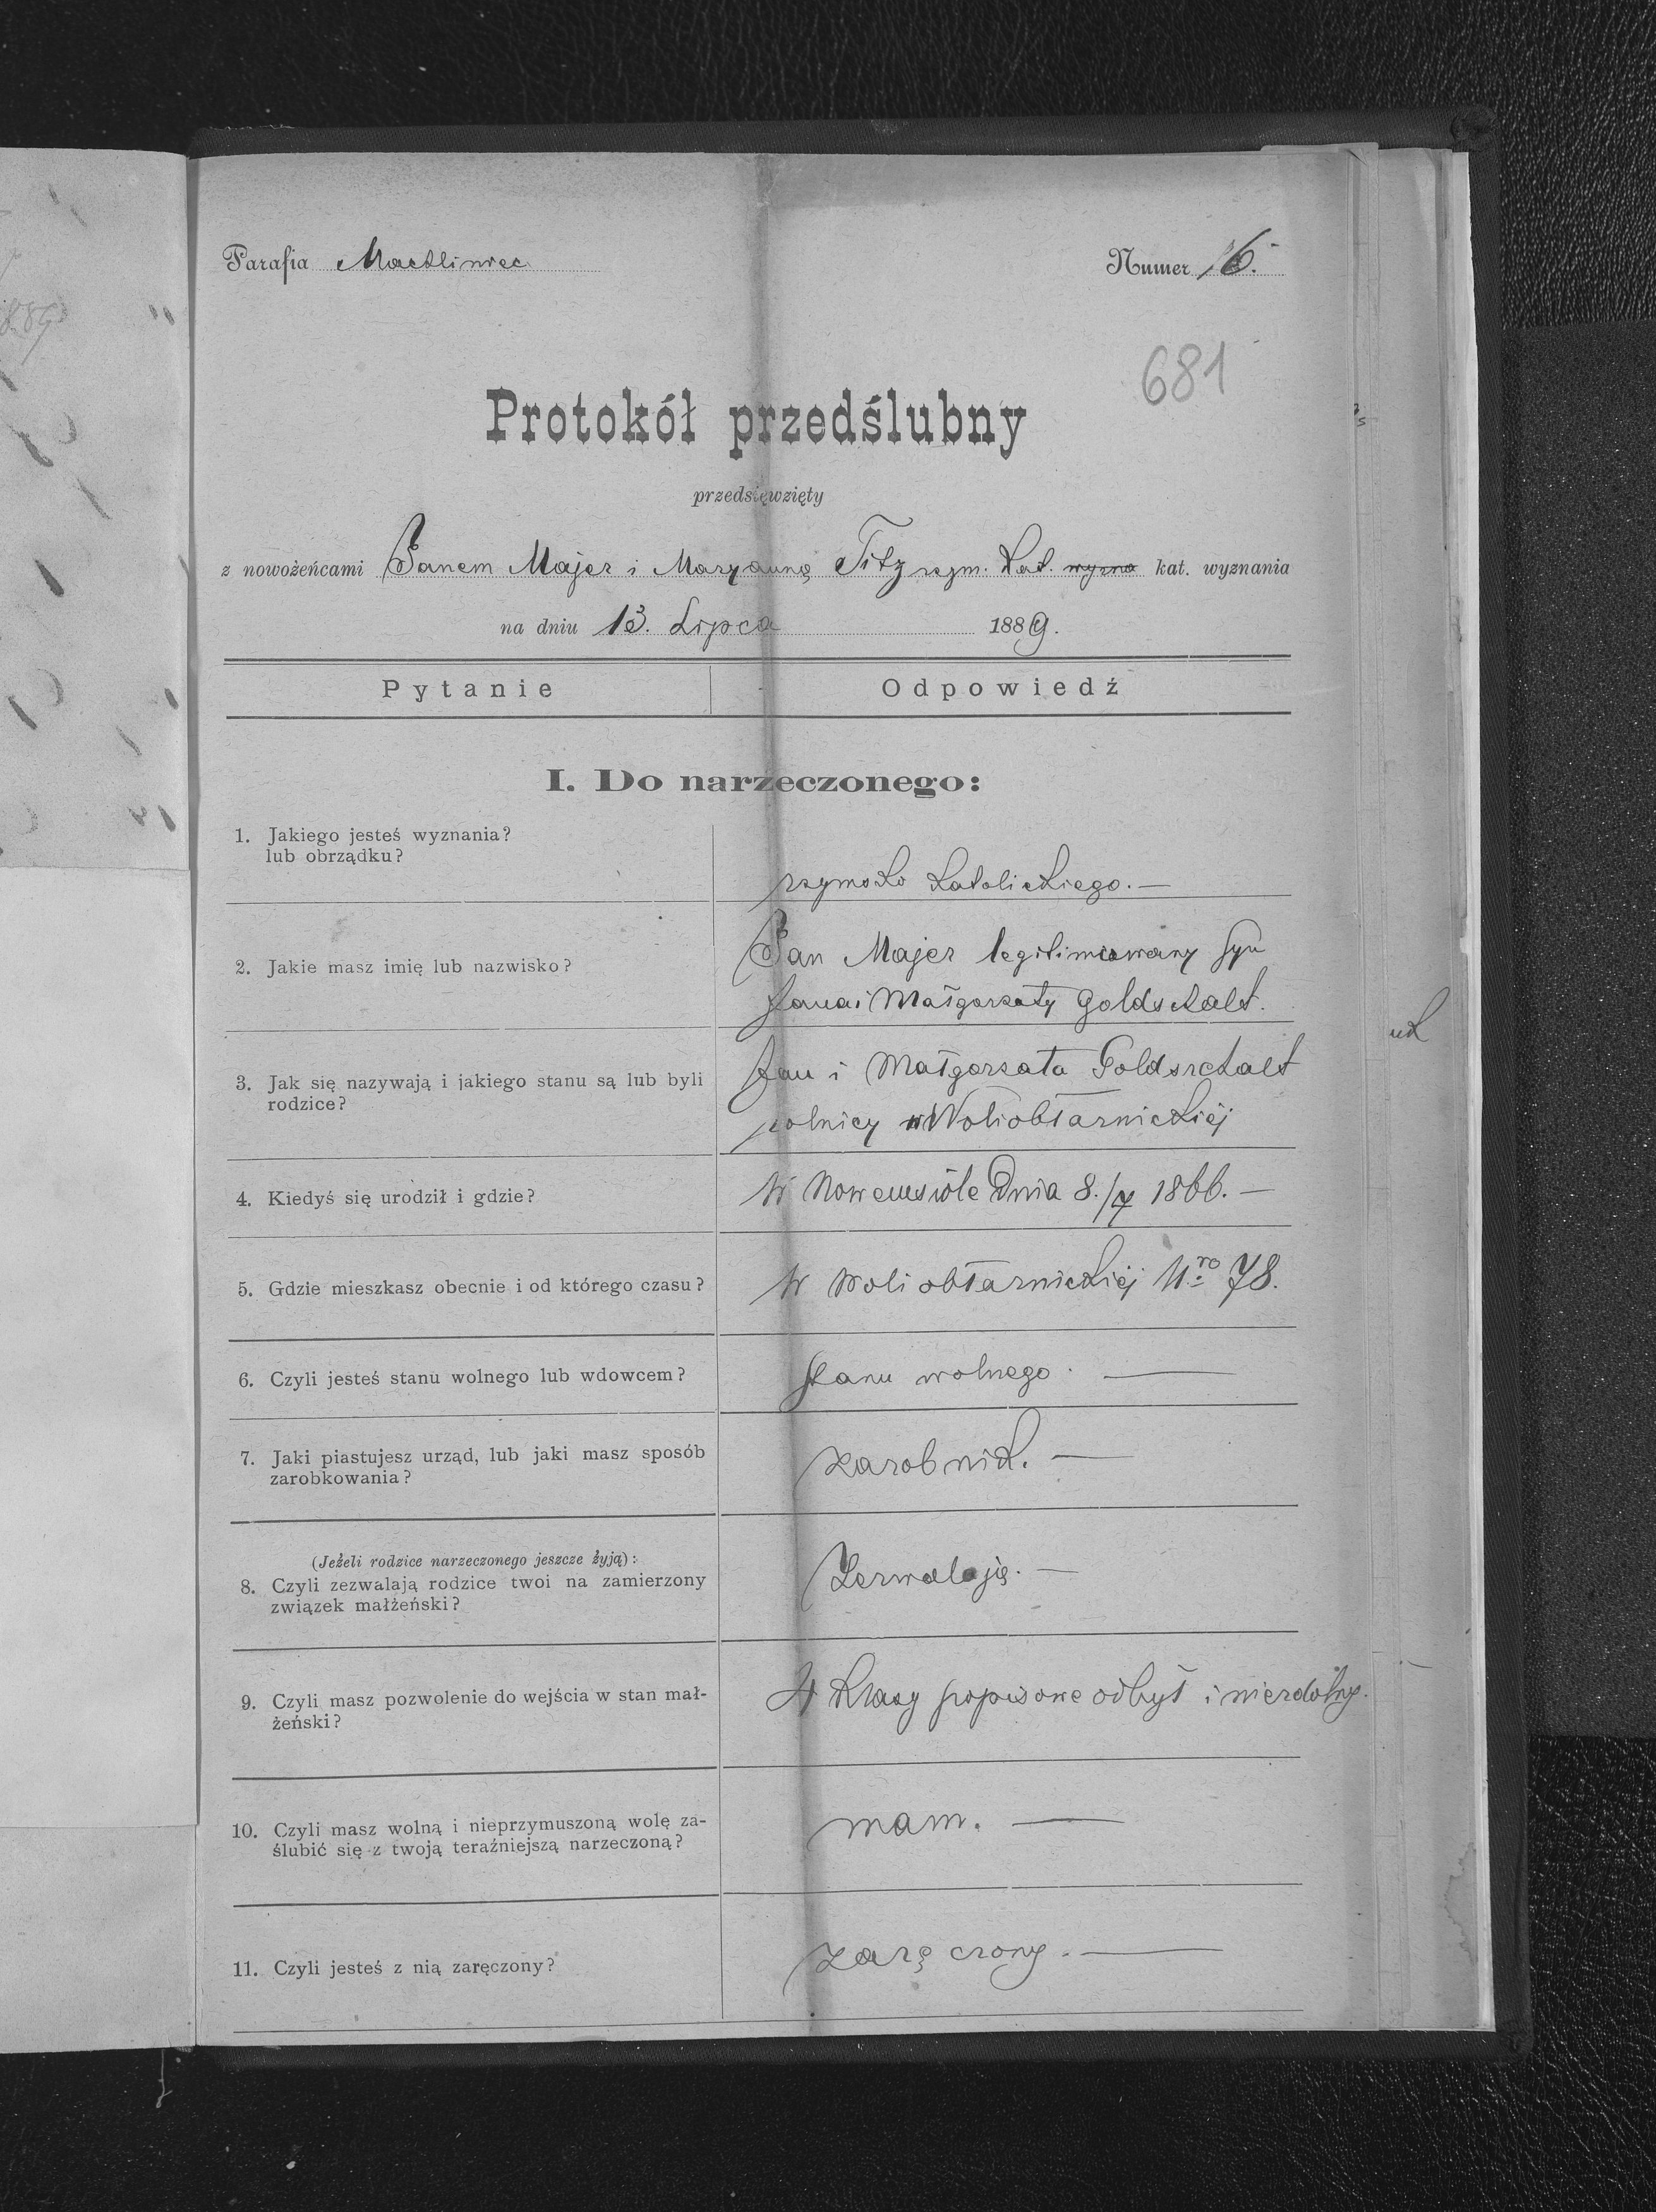 Parafia Machliniec
Numer 16.
681
Protokół przedślubny
przedsięwzięty
z nowożeńcami Janem Majer i Maryanną Titz rzym. kat. wyzna kat. wyznania
na dniu 13. Lipca 1889.
Pytanie Odpowiedź
I. Do narzeczonego:
1. Jakiego jesteś wyznania?
lub obrządku?
rzymsko katolickiego. —
2. Jakie masz imię lub nazwisko?
Jan Majer legitimowany syn
Jana i Małgorzaty Goldschalt.
3. Jak się nazywają i jakiego stanu są lub byli
rodzice?
Jan i Małgorzata Goldschalt
rolnicy w Woliobłarnickiéj
4. Kiedyś się urodził i gdzie?
W Nowemsiole Dnia 8./7 1866. —
5. Gdzie mieszkasz obecnie i od którego czasu?
W Woli obłarnickiéj Nro 78.
6. Czyli jesteś stanu wolnego lub wdowcem?
stanu wolnego. —
7. Jaki piastujesz urząd, lub jaki masz sposób
zarobkowania?
zarobnik. —
(Jeżeli rodzice narzeczonego jeszcze żyją):
8. Czyli zezwalają rodzice twoi na zamierzony
związek małżeński?
Zezwalają. —
9. Czyli masz pozwolenie do wejścia w stan mał-
żeński?
4 klasy popisowe odbył i niezdolny.
10. Czyli masz wolną i nieprzymuszoną wolę za-
ślubić się z twoją teraźniejszą narzeczoną?
mam. —
11. Czyli jesteś z nią zaręczony?
zaręczony. —